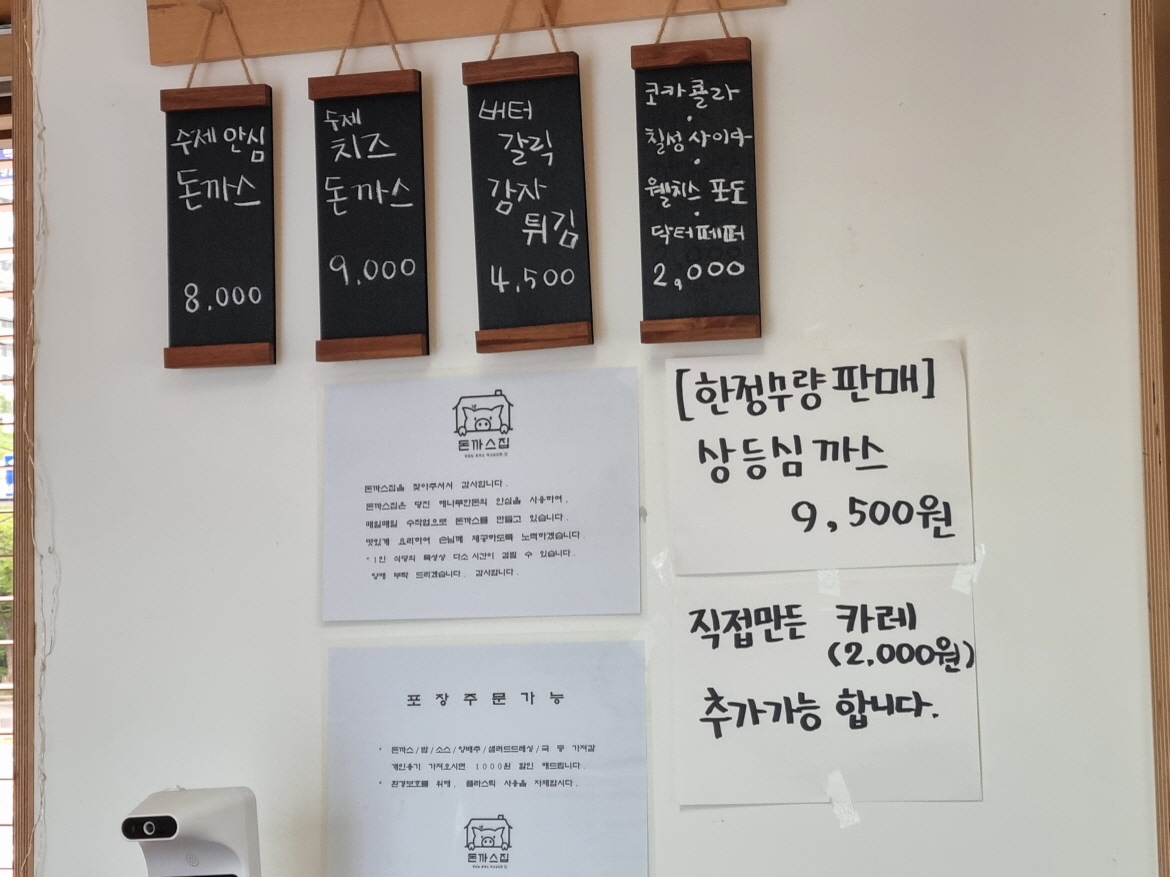 수제 안심
돈까스
8.000
수제
치즈
돈까스
9.000
버터
갈릭
감자
튀김
4.500
코카콜라
칠성사이다
웰치스 포도
닥터페퍼
2,000
[한정수량 판매]
상등심 까스
9,500원
직접만든 카레
(2.000원)
추가가능 합니다.
돈까스집
돈까스집을 찾아주셔서 감사합니다.
돈까스집은 당진 해나루한돈의 안심을 사용하여,
매일매일 수작업으로 돈까스를 만들고 있습니다.
맛있게 요리하여 손님께 제공하도록 노력하겠습니다.
*1인 식당의 특성상 다소 시간이 걸릴 수 있습니다.
양해 부탁 드리겠습니다. 감사합니다.
포장주문가능
* 돈까스/밥/소스/양배추/샐러드드레싱/국 등 가져갈
개인용기 가져오시면 1000원 할인 해드립니다.
* 환경보호를 위해, 플라스틱 사용을 자제합시다.
돈까스집